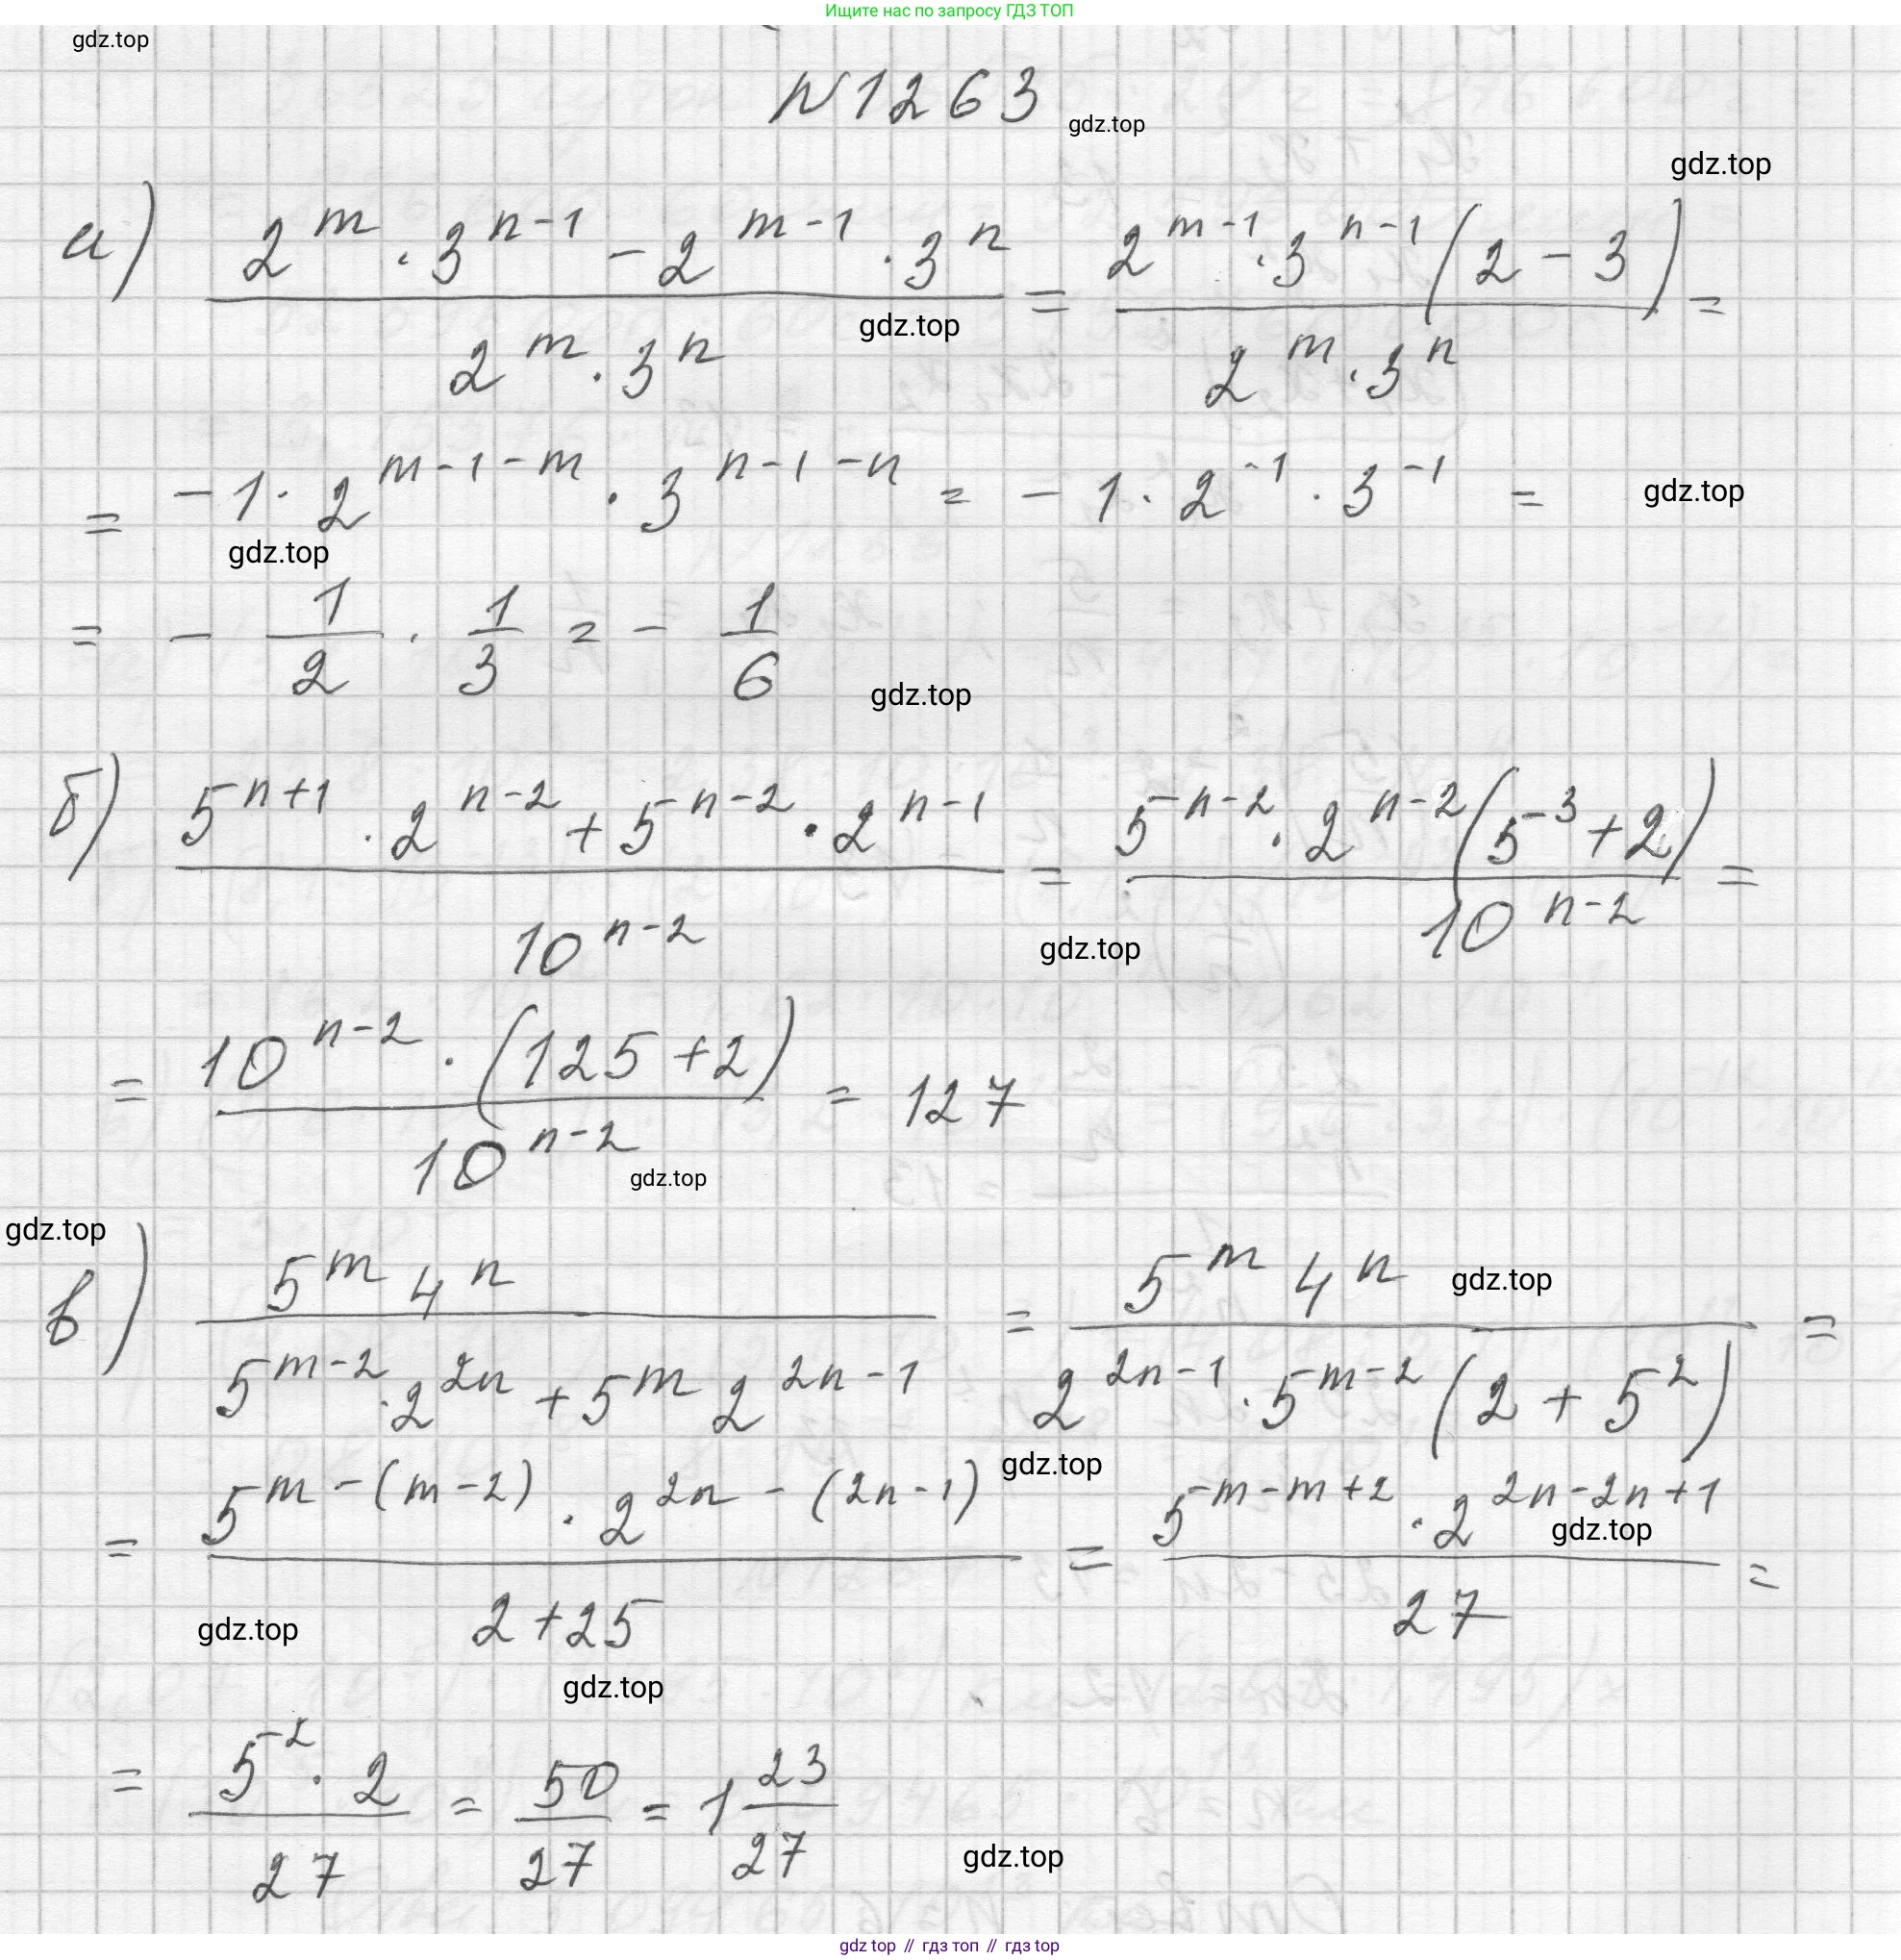 Ищите нас по запросу ГДЗ ТОП
gdz.top
N 1263
gdz.top
gdz.top
а) (2^m · 3^(n-1) - 2^(m-1) · 3^n) / (2^m · 3^n) = (2^(m-1) · 3^(n-1) (2 - 3)) / (2^m · 3^n) =
gdz.top
= -1 · 2^(m-1-m) · 3^(n-1-n) = -1 · 2^(-1) · 3^(-1) =
gdz.top
gdz.top
= - 1/2 · 1/3 = - 1/6
gdz.top
б) (5^(n+1) · 2^(n-2) + 5^(n-2) · 2^(n-1)) / 10^(n-2) = (5^(n-2) · 2^(n-2) (5^3 + 2)) / 10^(n-2) =
gdz.top
= (10^(n-2) · (125 + 2)) / 10^(n-2) = 127
gdz.top
gdz.top
в) (5^m 4^n) / (5^(m-2) · 2^(2n) + 5^m 2^(2n-1)) = (5^m 4^n) / (2^(2n-1) · 5^(m-2) (2 + 5^2)) =
gdz.top
gdz.top
= (5^(m-(m-2)) · 2^(2n-(2n-1))) / (2 + 25) = (5^(m-m+2) · 2^(2n-2n+1)) / 27 =
gdz.top
gdz.top
gdz.top
= (5^2 · 2) / 27 = 50/27 = 1 23/27
gdz.top
gdz top // гдз топ // гдз top